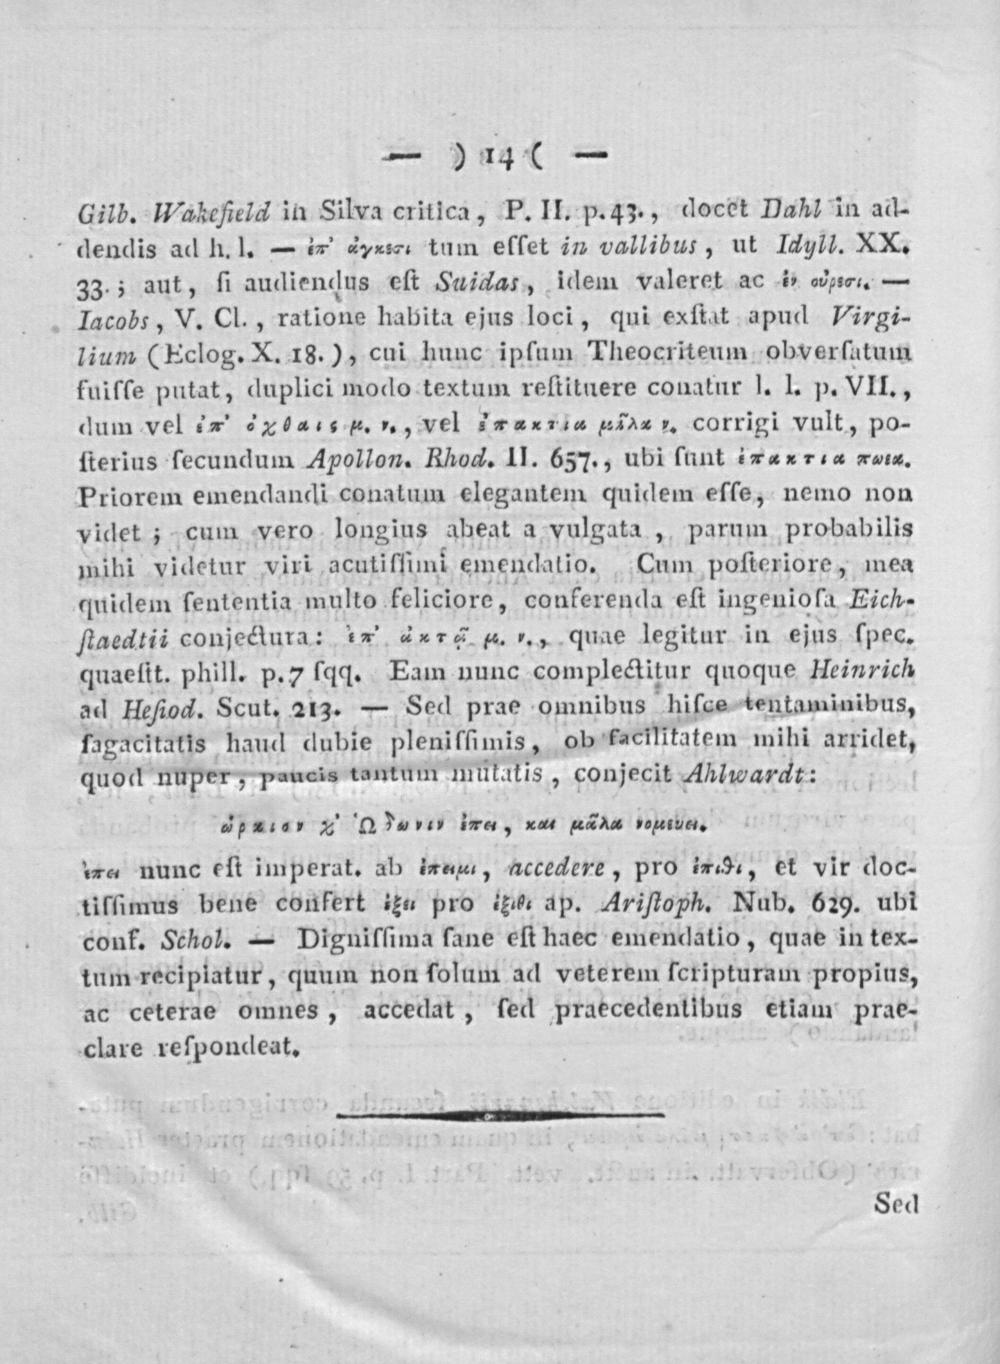 — ) 14 ( —
Gilb. Wakefield in Silva critica, P. II. p. 43., docet Dahl in ad-
dendis ad h. l. — ἐπ’ ἄγκεσι tum eſſet in vallibus, ut Idyll. XX.
33.; aut, ſi audiendus eſt Suidas, idem valeret ac ἐν οὔρεσι. —
Iacobs, V. Cl., ratione habita ejus loci, qui exſtat apud Virgi-
lium (Eclog. X. 18.), cui hunc ipſum Theocriteum obverſatum
fuiſſe putat, duplici modo textum reſtituere conatur l. l. p. VII.,
dum vel ἐπ’ ὄχθαις μ. ν., vel ἐπακτια μᾶλα ν. corrigi vult, po-
ſterius ſecundum Apollon. Rhod. II. 657., ubi ſunt ἐπακτια πωεα.
Priorem emendandi conatum elegantem quidem eſſe, nemo non
videt; cum vero longius abeat a vulgata, parum probabilis
mihi videtur viri acutiſſimi emendatio. Cum poſteriore, mea
quidem ſententia multo feliciore, conferenda eſt ingenioſa Eich-
ſtaedtii conjectura: ἐπ’ ἀκτᾷ μ. ν., quae legitur in ejus ſpec.
quaeſit. phill. p. 7 ſqq. Eam nunc complectitur quoque Heinrich
ad Heſiod. Scut. 213. — Sed prae omnibus hiſce tentaminibus,
ſagacitatis haud dubie pleniſſimis, ob facilitatem mihi arridet,
quod nuper, paucis tantum mutatis, conjecit Ahlwardt:
ὡρκιον χ’ Ὡδωνιν ἐπει, και μᾶλα νομευει.
ἐπει nunc eſt imperat. ab ἐπειμι, accedere, pro ἐπιθι, et vir doc-
tiſſimus bene confert ἐξει pro ἐξιθι ap. Ariſtoph. Nub. 629. ubi
conf. Schol. — Digniſſima ſane eſt haec emendatio, quae in tex-
tum recipiatur, quum non ſolum ad veterem ſcripturam propius,
ac ceterae omnes, accedat, ſed praecedentibus etiam prae-
clare reſpondeat.
Sed